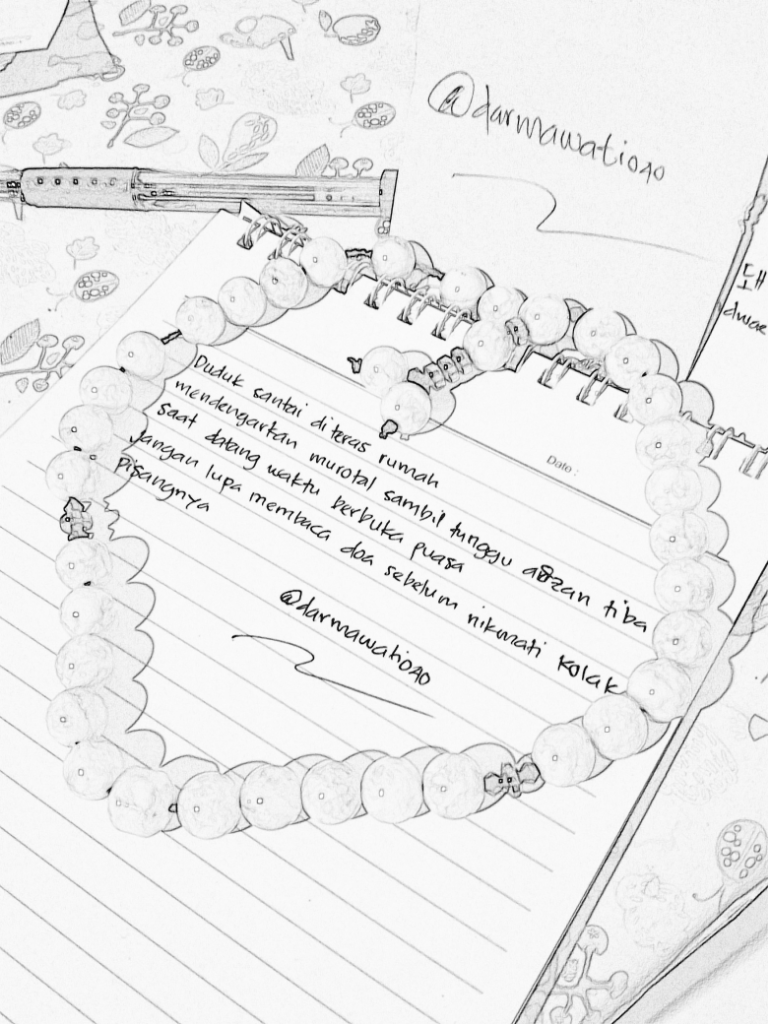 @darmawati040
돼
dwae
Date :
Duduk santai diteras rumah
mendengarkan murotal sambil tunggu adzan tiba
saat datang waktu berbuka puasa
jangan lupa membaca doa sebelum nikmati kolak
pisangnya
@darmawati040